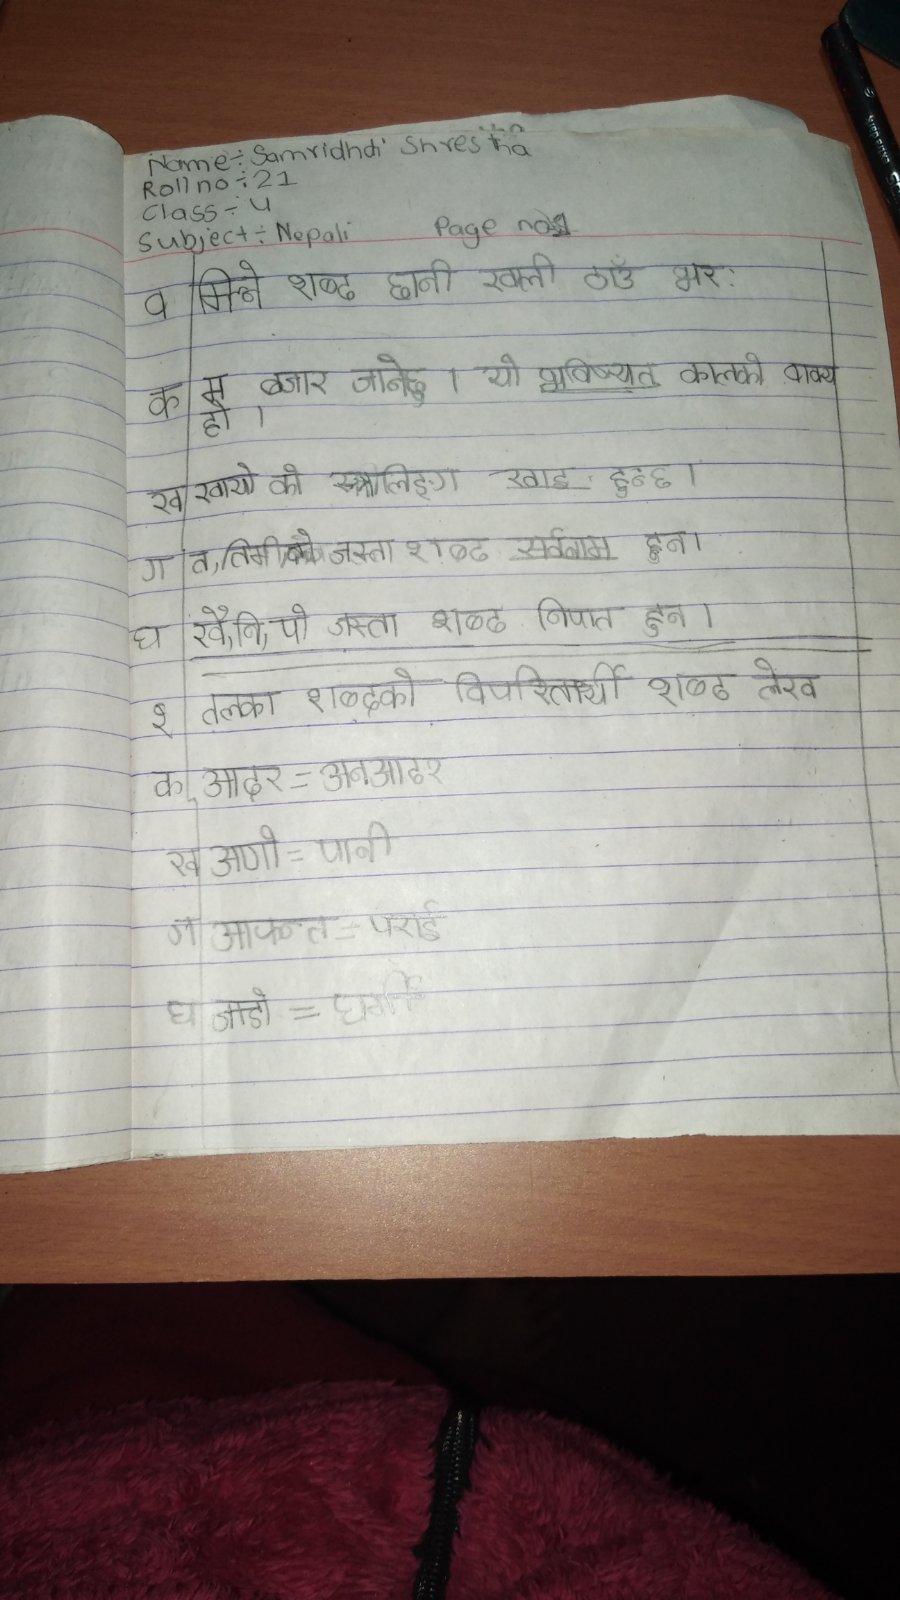 Name÷Samridhdi Shrestha
Roll no÷21
Class÷4
Subject÷Nepali Page no
व मिल्ने शब्द छानी खाली ठाउँ भर:
क म बजार जानेछु । यो भविष्यत कालको वाक्य
हो ।
ख खायो को स्त्रीलिङ्ग खाइ हुन्छ ।
ग त,तिमी जस्ता शब्द सर्वनाम हुन।
घ खै,नि,पो जस्ता शब्द निपात हुन ।
तलका शब्दको विपरितार्थी शब्द लेख
क आदर = अनआदर
ख आगो = पानी
ग = पराई
घ जाडो =